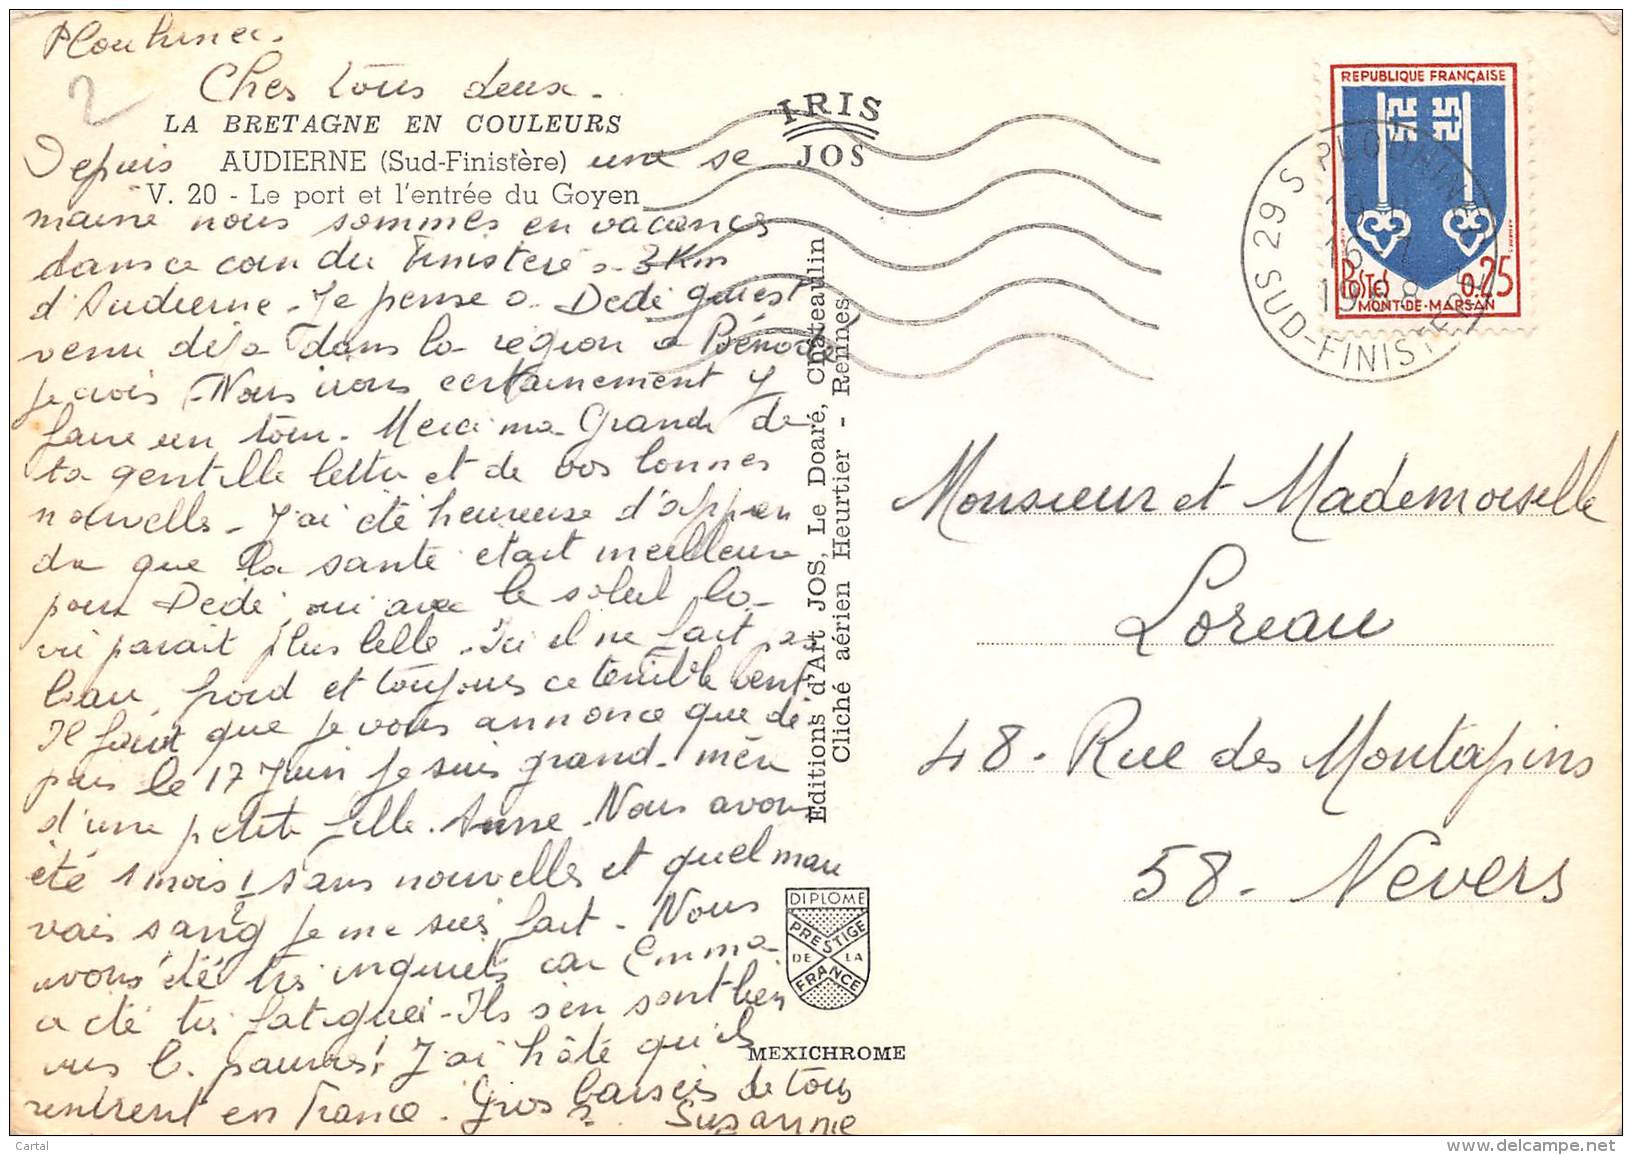 Plouhinec.
Chers tous deux.
LA BRETAGNE EN COULEURS
AUDIERNE (Sud-Finistère)
V. 20 - Le port et l'entrée du Goyen
Depuis une se
maine nous sommes en vacances
dans ce coin du Finistère à 3 Km
d'Audierne. Je pense à Dédé qui est
venu déjà dans la région à Bénodet
je crois. Nous irons certainement y
faire un tour. Merci ma Grande de
ta gentille lettre et de vos bonnes
nouvelles. J'ai été heureuse d'appren
dre que la santé était meilleure
pour Dédé, oui avec le soleil la
vie parait plus belle. Ici il ne fait pas
beau, froid et toujours ce terrible vent
Il faut que je vous annonce que de
puis le 17 Juin je suis grand-mère
d'une petite fille. Anne. Nous avons
été 1 mois 1/2 sans nouvelles et quel mau
vais sang je me suis fait. Nous
avons été très inquiets car Emma
a été très fatiguée. Ils s'en sont bien
vus les pauvres! J'ai hâte qu'ils
rentrent en France. Gros baisers de tous
Suzanne
2
IRIS
JOS
Editions d'Art JOS, Le Doaré, Châteaulin
Cliché aérien Heurtier - Rennes
REPUBLIQUE FRANÇAISE
POSTES 0.25
MONT-DE-MARSAN
29 S PLOUHINEC
16 7
1968
SUD-FINISTERE
Monsieur et Mademoiselle
Loreau
48. Rue des Montapins
58. Nevers
DIPLOME
PRESTIGE
DE LA
FRANCE
MEXICHROME
Cartal
www.delcampe.net